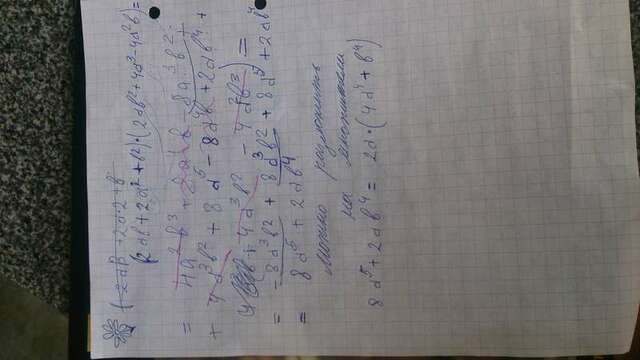 (2ab + 2a·2 + b
(2ab + 2a² + b²)·(2ab² + 4a³ - 4a²b) =
= 4a²b³ + 8a⁴b - 8a³b² +
+ 4a³b² + 8a⁵ - 8a⁴b + 2ab⁴ +
+ 4a³b² - 4a²b³) =
= -8a³b² + 8a³b² + 8a⁵ + 2ab⁴
= 8a⁵ + 2ab⁴
можно разложить
на множители
8a⁵ + 2ab⁴ = 2a·(4a⁴ + b⁴)